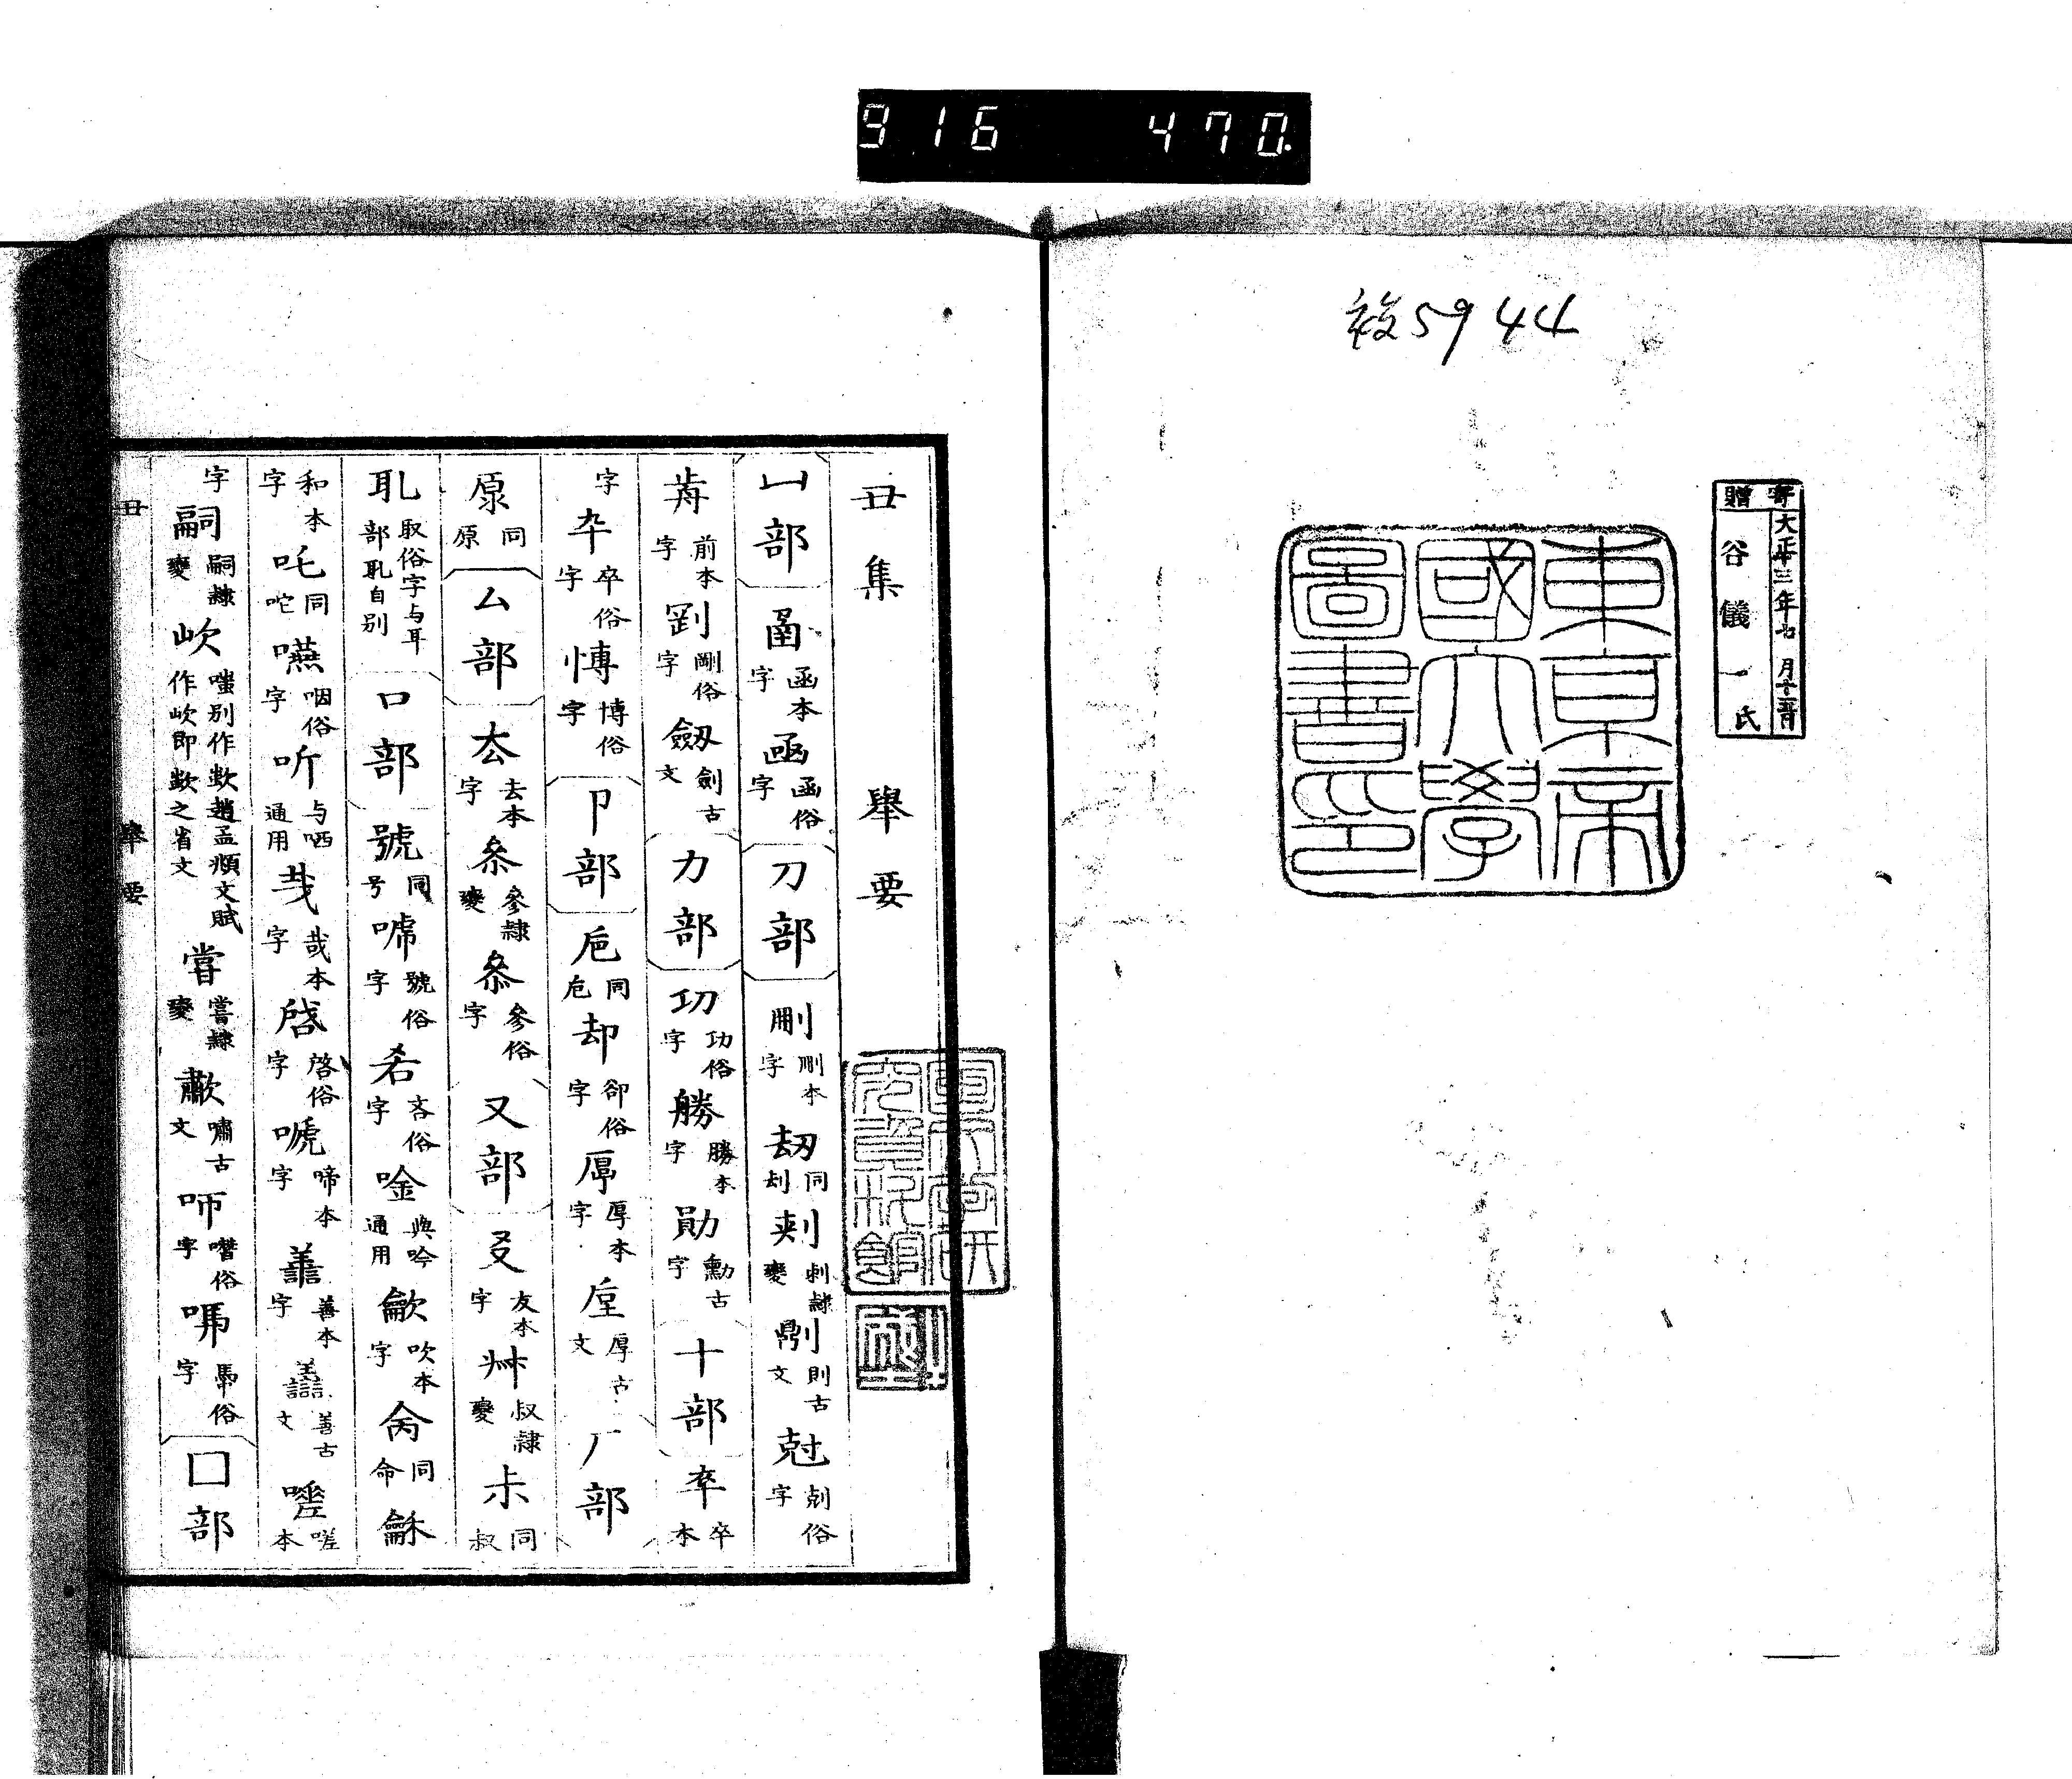 916 470.
5944
寄贈
大正十三年七月十五日
谷儀一氏
東京帝
國大學
圖書印
丑集 舉要
凵部 圅 函本字 凾 函俗字 刀部 刪 刪本字 刼 同刦 刾 刺隸變 鼎刂 則古文 尅 剋俗字
歬 前本字 㓻 剛俗字 劔 劍古文 力部 㓛 功俗字 勝 勝本字 勛 勳古字 十部 卒 卒本
字 卆 卒俗字 愽 博俗字 卩部 巵 同卮 却 卻俗字 厚 厚本字 垕 厚古文 厂部
厡 同原 厶部 厺 去本字 叅 參隸變 叅 參俗字 又部 叐 友本字 叔隸變 尗 同叔
耴 取俗字与耳部耴自別 口部 號 同号 嘑 號俗字 㕦 吝俗字 唫 與吟通用 龡 吹本字 肏 同命 龢
和本字 吒 同咤 嚥 咽俗字 听 与哂通用 㢤 哉本字 啓 啓俗字 嗁 啼本字 譱 善本字 善古文 嗟本
字 嗣 嗣隸變 㰞 嗤別作歎趙孟頫文賦作㰞即歎之省文 嘗 嘗隸變 歗 嘯古文 咂 噆俗字 嗎 罵俗字 囗部
丑 舉要